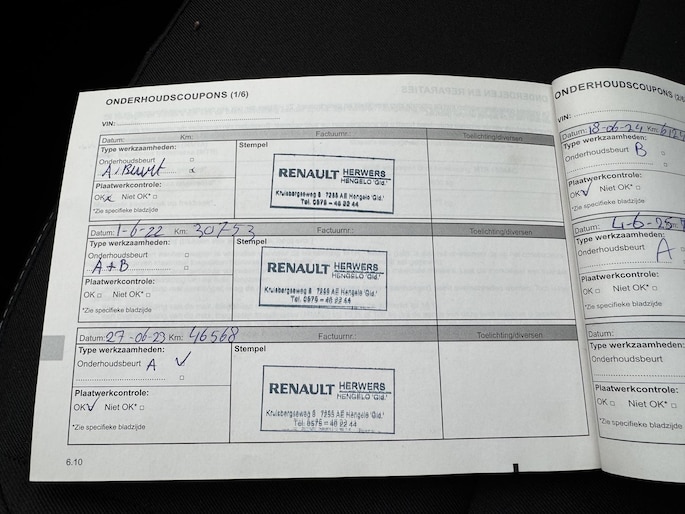 ONDERHOUDSCOUPONS (1/6)
VIN:
Datum: Km: Factuurnr.: Toelichting/diversen
Type werkzaamheden: Stempel
Onderhoudsbeurt
RENAULT HERWERS
HENGELO 'Gld.'
Kruisbergseweg 8 7255 AE Hengelo 'Gld.'
Tel. 0575 - 46 22 44
Plaatwerkcontrole:
OK Niet OK*
*Zie specifieke bladzijde
Datum: 1-6-22 Km: 30753 Factuurnr.: Toelichting/diversen
Type werkzaamheden: Stempel
Onderhoudsbeurt
A+B
RENAULT HERWERS
HENGELO 'Gld.'
Kruisbergseweg 8 7255 AE Hengelo 'Gld.'
Tel. 0575 - 46 22 44
Plaatwerkcontrole:
OK Niet OK*
*Zie specifieke bladzijde
Datum: 27-06-23 Km: 46568 Factuurnr.: Toelichting/diversen
Type werkzaamheden: Stempel
Onderhoudsbeurt A
RENAULT HERWERS
HENGELO 'Gld.'
Kruisbergseweg 8 7255 AE Hengelo 'Gld.'
Tel. 0575 - 46 22 44
Plaatwerkcontrole:
OK Niet OK*
*Zie specifieke bladzijde
6.10
ONDERHOUDSCOUPONS
VIN:
Datum: 18-06-24 Km:
Type werkzaamheden:
Onderhoudsbeurt B
Plaatwerkcontrole:
OK Niet OK*
*Zie specifieke bladzijde
Type werkzaamheden:
Onderhoudsbeurt A
Plaatwerkcontrole:
OK Niet OK*
*Zie specifieke bladzijde
Datum:
Type werkzaamheden:
Onderhoudsbeurt
Plaatwerkcontrole:
OK Niet OK*
*Zie specifieke bladzijde